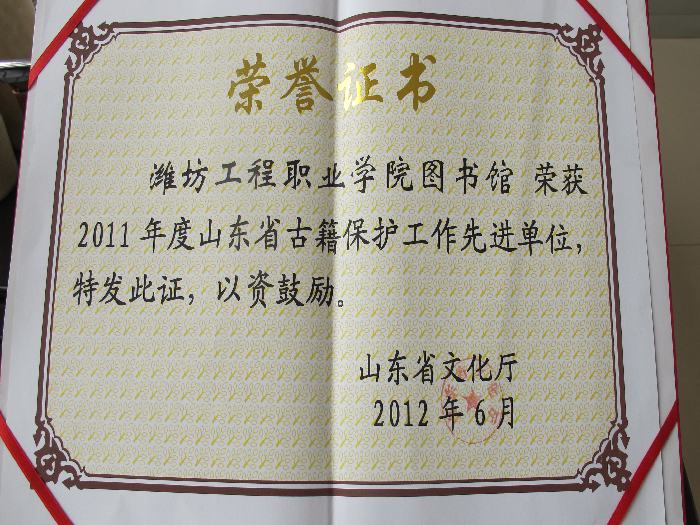 荣誉证书
潍坊工程职业学院图书馆 荣获
2011年度山东省古籍保护工作先进单位，
特发此证，以资鼓励。
山东省文化厅
2012年6月